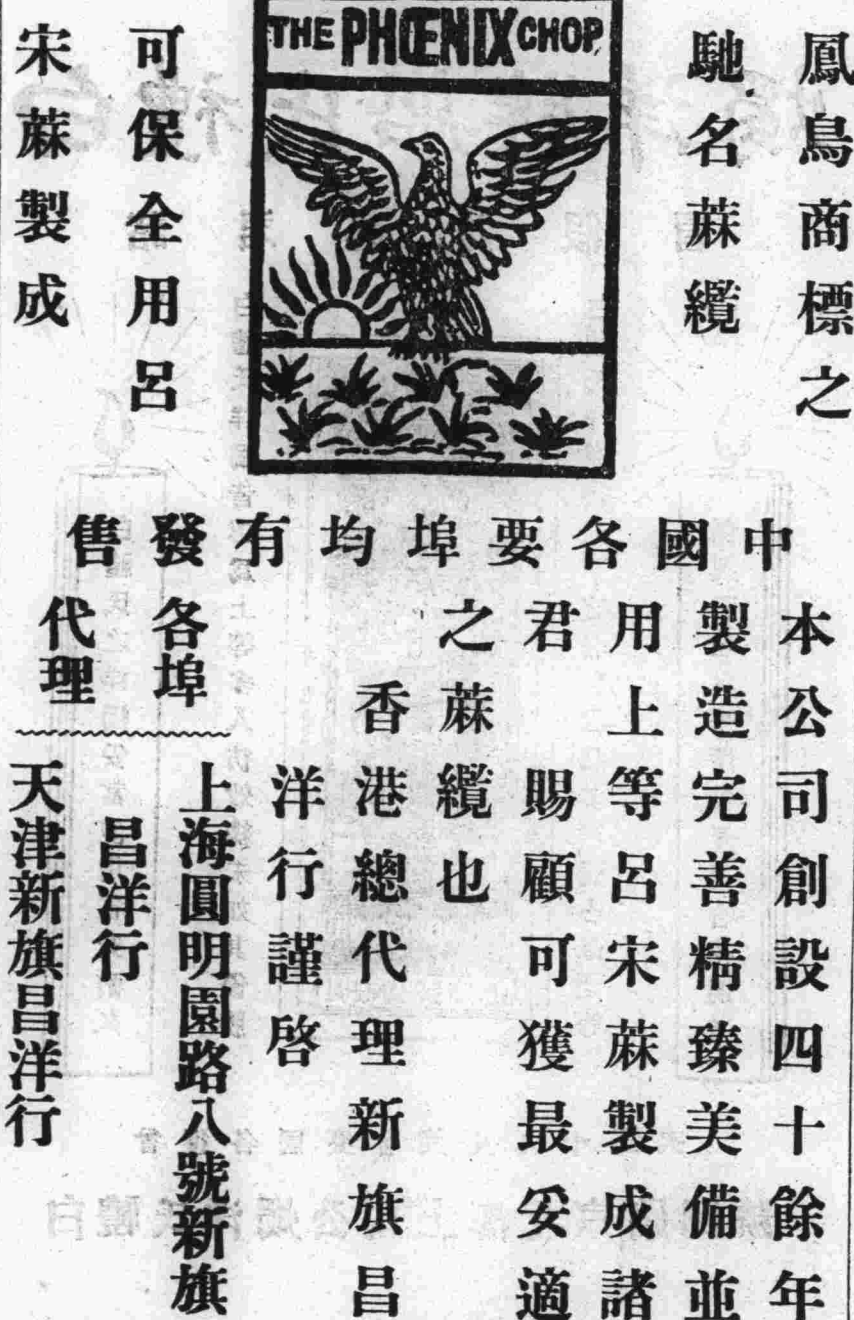 鳳鳥商標之
馳名蔴纜
THE PHŒNIX CHOP
可保全用呂
宋蔴製成
中國各要埠均有發售
本公司創設四十餘年
製造完善精臻美備並
用上等呂宋蔴製成諸
君賜顧可獲最妥適
之蔴纜也
香港總代理新旗昌
洋行謹啓
各埠
代理
上海圓明園路八號新旗
昌洋行
天津新旗昌洋行